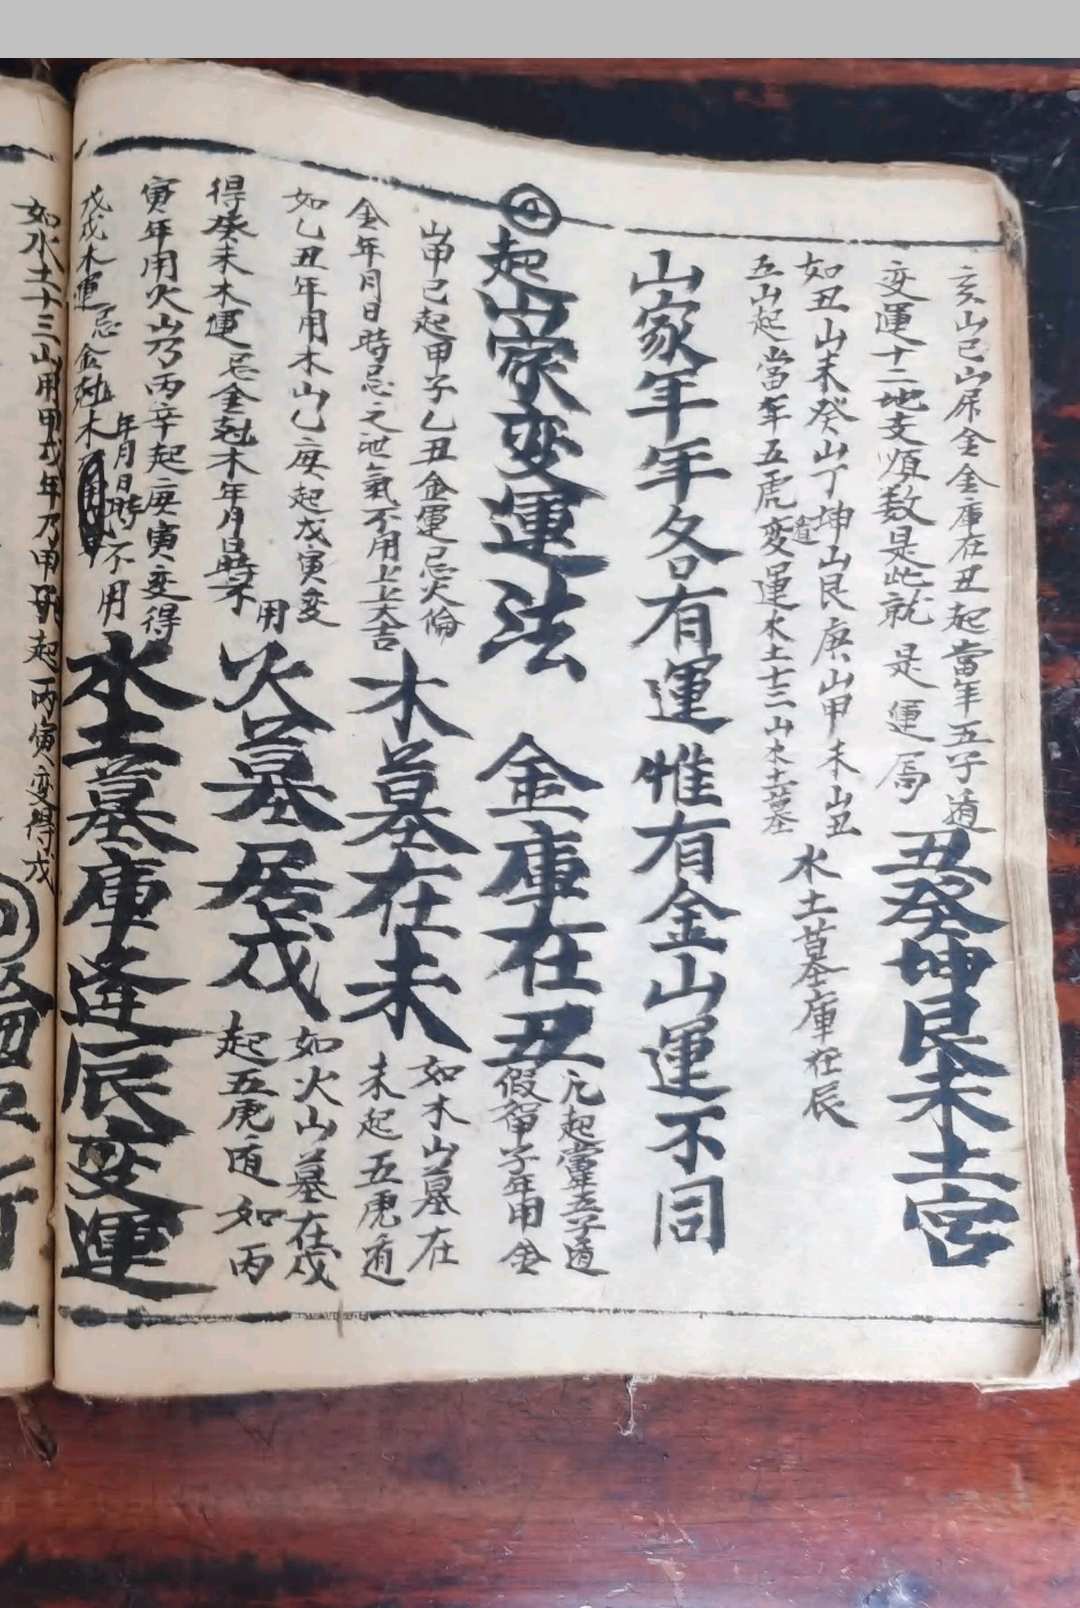 亥山巳山屌金金庫在丑起當年五子遁
变運十二地支順数是此就是運焉
丑癸坤艮未土宮
如丑山未癸山丁坤山艮庚山甲未山丑
五山起當年五虎遁变運水土十三山水土墓
水土墓庫在辰
山家年年各有運惟有金山運不同
起山家变運法
金庫在丑
凡起當年五子遁
假如甲子年用金
山甲己起甲子乙丑金運忌火倫
金年月日時忌之泄氣不用上上大吉
木墓在未
如木山墓在
未起五虎遁
如乙丑年用木山乙庚起戊寅变
得癸未木運忌金尅木年月日時不用
火墓居戌
如火山墓在戌
起五虎遁如丙
寅年用火山乃丙辛起庚寅变得
戊戌木運忌金尅木年月日時不用
水土墓庫逢辰变運
如水土十三山用甲戌年乃甲己起丙寅变得戊